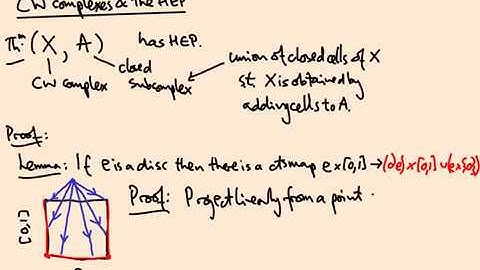 CW complexes & the HEP
Thm: (X, A) has HEP.
CW complex
closed subcomplex
union of closed cells of X
st. X is obtained by
adding cells to A.
Proof:
Lemma: If e is a disc then there is a cts map e×[0,1] → (∂e)×[0,1] ∪ (e×{0})
Proof: Project linearly from a point.
[0,1]